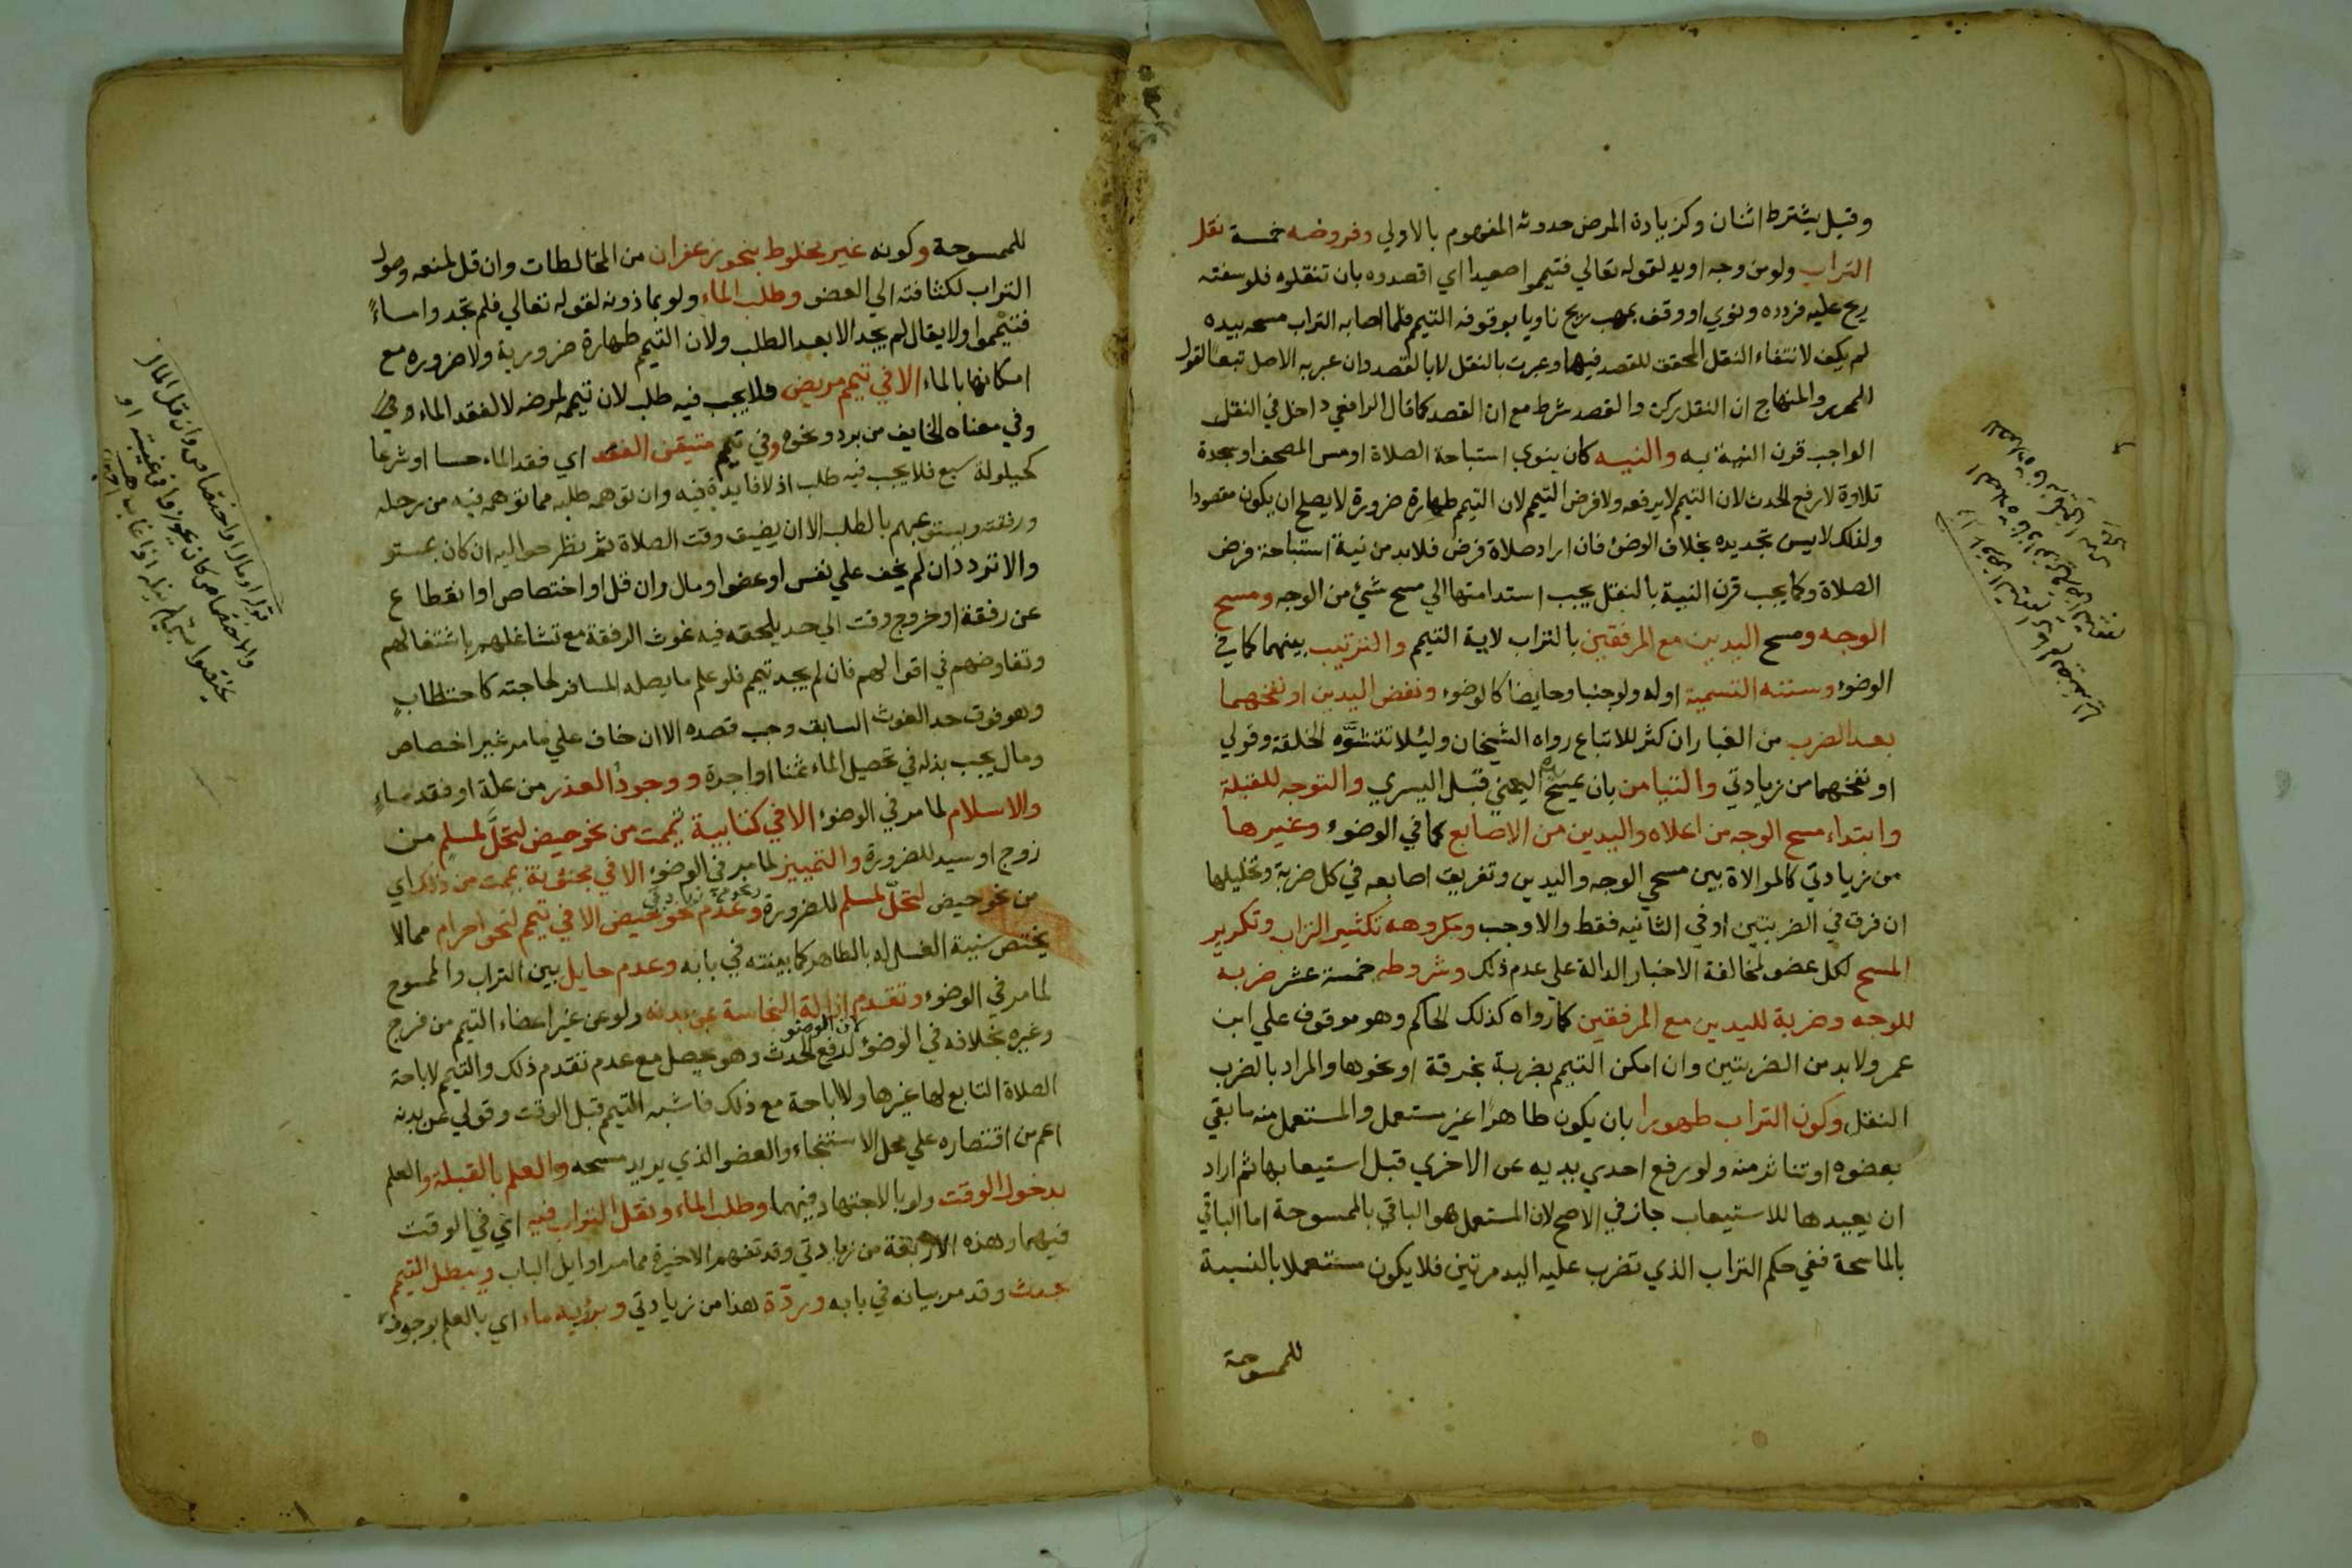 وقيل يشترط اثنان وكزيادة المرض حدوثه المفهوم بالاولي وفروضه خمسة نقل
التراب ولو من وجه او يد لقوله تعالي فتيمموا صعيدا اي اقصدوه بان تنقلوه فلو سفته
ريح عليه فردده ونوي او وقف بمهب ريح ناويا بوقوفه التيمم فلما اصابه التراب مسحه بيده
لم يكف لانتفاء النقل المحقق للقصد فيهما وعبرت بالنقل لا بالقصد وان عبر به الاصل تبعا لقول
المحرر والمنهاج ان النقل ركن والقصد شرط مع ان القصد كما قال الرافعي داخل في النقل
الواجب قرن النية به والنيه كان ينوي استباحة الصلاة او مس المصحف او سجدة
تلاوة لا رفع الحدث لان التيمم لا يرفعه ولا فرض التيمم لان التيمم طهارة ضرورة لا يصلح ان يكون مقصودا
ولذلك لا يسن تجديده بخلاف الوضوء فان اراد صلاة فرض فلا بد من نية استباحة فرض
الصلاة وكما يجب قرن النية بالنقل يجب استدامتها الي مسح شئ من الوجه ومسح
الوجه ومسح اليدين مع المرفقين بالتراب لاية التيمم والترتيب بينهما كما في
الوضوء وسننه التسمية اوله ولو جنبا وحايضا كالوضوء ونفض اليدين او نفخهما
بعد الضرب من الغبار ان كثر للاتباع رواه الشيخان ولئلا تتشوه الخلقة وقولي
او نفخهما من زيادتي والتيامن بان يمسح اليمني قبل اليسري والتوجه للقبلة
وابتداء مسح الوجه من اعلاه واليدين من الاصابع كما في الوضوء وغيرها
من زيادتي كالموالاة بين مسحي الوجه واليدين وتفريق اصابعه في كل ضربة وتخليلها
ان فرق في الضربتين او في الثانيه فقط والا وجب ومكروهه تكثير التراب وتكرير
المسح لكل عضو لمخالفة الاخبار الدالة علي عدم ذلك وشروطه خمسة عشر ضربه
للوجه وضربة لليدين مع المرفقين كما رواه كذلك الحاكم وهو موقوف علي ابن
عمر ولا بد من الضربتين وان امكن التيمم بضربة بخرقة او نحوها والمراد بالضرب
النقل وكون التراب طهورا بان يكون طاهرا غير مستعمل والمستعمل منه ما بقي
بعضوه او تناثر منه ولو رفع احدي يديه عن الاخري قبل استيعابها ثم اراد
ان يعيدها للاستيعاب جاز في الاصح لان المستعمل هو الباقي بالممسوحة اما الباقي
بالماسحة ففي حكم التراب الذي تضرب عليه اليد مرتين فلا يكون مستعملا بالنسبة
للممسوحة
للممسوحة وكونه غير مخلوط بنحو زعفران من المخالطات وان قل لمنعه وصول
التراب لكثافته الي العضو وطلب الماء ولو بماذونه لقوله تعالي فلم تجدوا ماءً
فتيمموا ولا يقال لم يجد الا بعد الطلب ولان التيمم طهارة ضرورية ولا ضرورة مع
امكانها بالماء الا في تيمم مريض فلا يجب فيه طلب لان تيممه لمرضه لا لفقد الماء
وفي معناه الخايف من برد ونحوه وفي تيمم متيقن الفقد اي فقد الماء حسا او شرعا
كحيلولة سبع فلا يجب فيه طلب اذ لا فايدة فيه وان توهمه طلبه مما توهمه فيه من رحله
ورفقته ويستوعبهم بالطلب الا ان يضيق وقت الصلاة ثم نظر حواليه ان كان بمستو
والا تردد ان لم يخف علي نفس او عضو او مال وان قل او اختصاص او انقطاع
عن رفقة او خروج وقت الي حد يلحقه فيه غوث الرفقة مع تشاغلهم باشتغالهم
وتفاوضهم في اقوالهم فان لم يجد تيمم فلو علم ما يصله المسافر لحاجته كاحتطاب
وهو فوق حد الغوث السابق وجب قصده الا ان خاف علي ما مر غير اختصاص
ومال يجب بذله في تحصيل الماء ثمنا او اجرة ووجود العذر من علة او فقد ماءٍ
والاسلام لما مر في الوضوء الا في كتابية تيممت من نحو حيض لتحل لمسلم من
زوج او سيد للضرورة والتمييز لما مر في الوضوء الا في مجنونة يممت من ذلك اي
من نحو حيض لتحل لمسلم للضرورة وعدم نحو حيض الا في تيمم لنحو احرام مما لا
يختص سنية الغسل له بالطاهر كما بينته في بابه وعدم حايل بين التراب والممسوح
لما مر في الوضوء وتقدم ازالة النجاسة عن بدنه ولو عن غير اعضاء التيمم من فرج
وغيره بخلافه في الوضوء لان الوضو لرفع الحدث وهو يحصل مع عدم تقدم ذلك والتيمم لاباحة
الصلاة التابع لها غيرها ولا اباحة مع ذلك فاشبه التيمم قبل الوقت وقولي عن بدنه
اعم من اقتصاره علي محل الاستنجاء والعضو الذي يريد مسحه والعلم بالقبلة والعلم
بدخول الوقت ولو بالاجتهاد فيهما وطلب الماء ونقل التراب فيه اي في الوقت
فيهما وهذه الاربعة من زيادتي وقد تفهم الاخيرة مما مر اوايل الباب ويبطل التيمم
حدث وقد مر بيانه في بابه وردة هذا من زيادتي وبرؤية ماء اي بالعلم بوجوده
قوله او مال او اختصاص وان قل المال